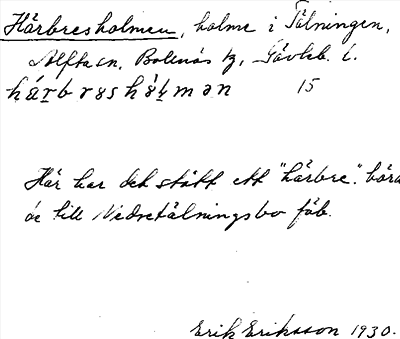 Härbresholmen, holme i Tälningen,
Alfta sn, Bollnäs tg, Gävleb. l.
hárbrəshólmən 15
Här har det stått ett "härbre".
till Nedretälningsbo fäb.
Erik Eriksson 1930.